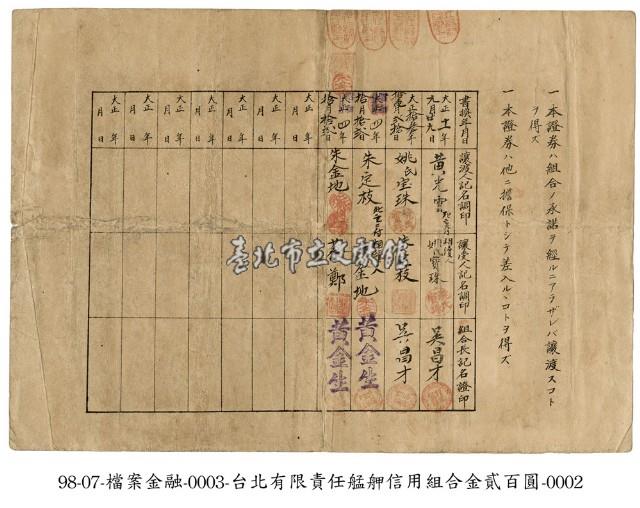 一 本證券ハ組合ノ承諾ヲ經ルニアラザレバ讓渡スコト
ヲ得ズ
一 本證券ハ他ニ擔保トシテ差入ルヽコトヲ得ズ
書換年月日 讓渡人記名調印 讓受人記名調印 組合長記名證印
大正十一年
九月廿九日
黃光雲
相續人
姚氏寶珠
吳昌才
大正拾參年
姚氏宝珠
朱定枝
吳昌才
四年
朱定枝
金地
黃金生
四年
朱金地
鄭
黃金生
大正 年
月 日
大正 年
月 日
大正 年
月 日
大正 年
月 日
大正 年
月 日
大正 年
月 日
大正 年
月 日
臺北市立文獻館
98-07-檔案金融-0003-台北有限責任艋舺信用組合金貳百圓-0002